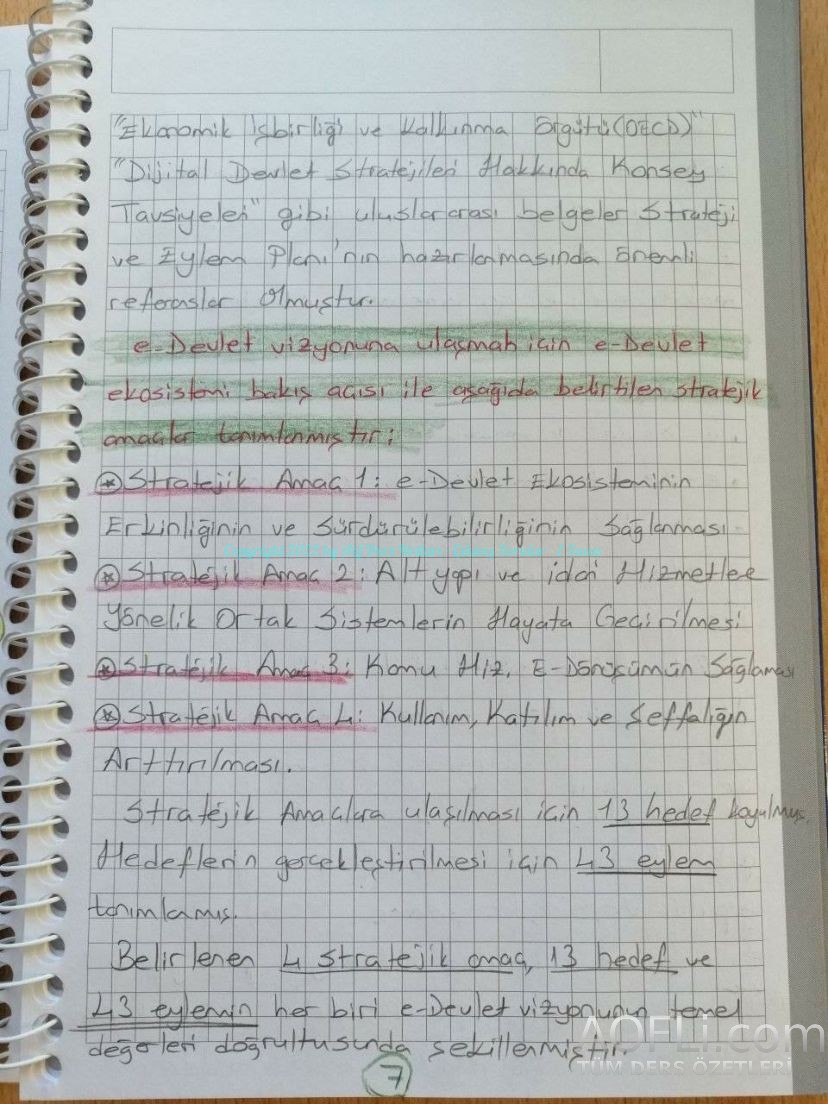 "Ekonomik İşbirliği ve Kalkınma Örgütü (OECD)"
"Dijital Devlet Stratejileri Hakkında Konsey
Tavsiyeleri" gibi uluslararası belgeler Strateji
ve Eylem Planı'nın hazırlanmasında önemli
referanslar olmuştur.
e-Devlet vizyonuna ulaşmak için e-Devlet
ekosistemi bakış açısı ile aşağıda belirtilen stratejik
amaçlar tanımlanmıştır;
Stratejik Amaç 1: e-Devlet Ekosisteminin
Erkinliğinin ve Sürdürülebilirliğinin Sağlanması
Stratejik Amaç 2: Alt yapı ve idari Hizmetlere
Yönelik Ortak Sistemlerin Hayata Geçirilmesi
Stratejik Amaç 3: Kamu Hiz. E-Dönüşümün Sağlaması
Stratejik Amaç 4: Kullanım, Katılım ve Şeffalığın
Arttırılması.
Stratejik Amaçlara ulaşılması için 13 hedef koyulmuş,
Hedeflerin gerçekleştirilmesi için 43 eylem
tanımlamış.
Belirlenen 4 stratejik amaç, 13 hedef ve
43 eylemin her biri e-Devlet vizyonunun temel
değerleri doğrultusunda şekillenmiştir.
7
AÖFLi.com
TÜM DERS ÖZETLERİ